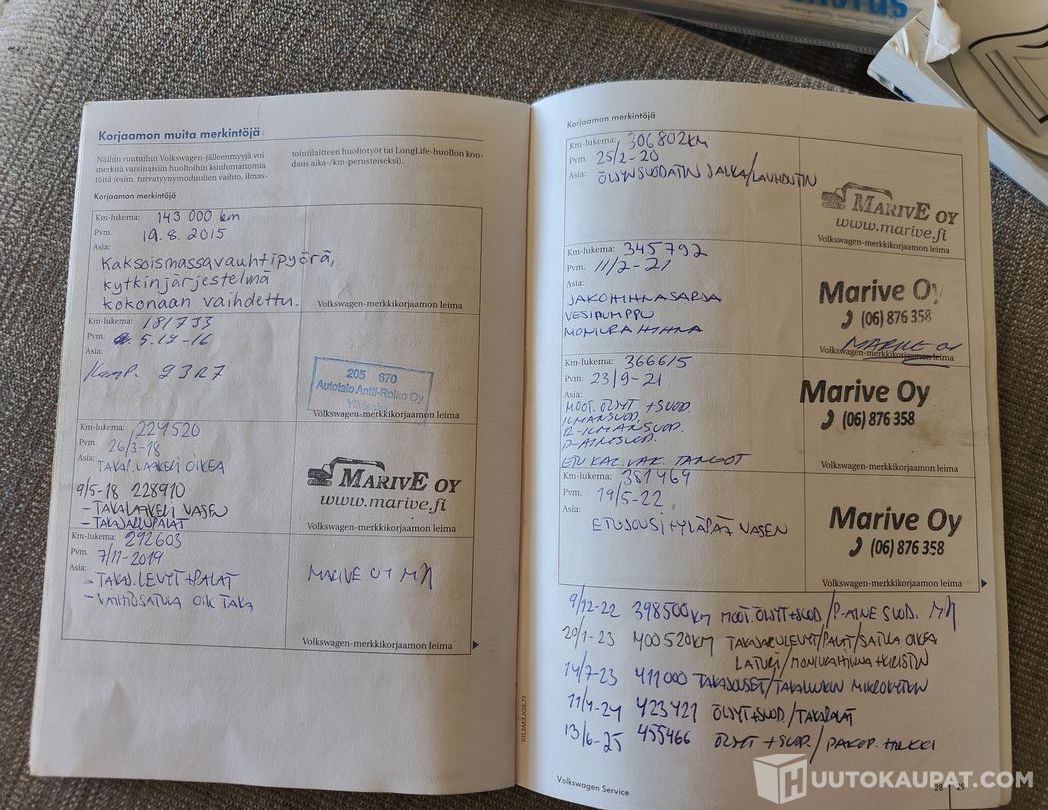 Korjaamon muita merkintöjä
Näihin ruutuihin Volkswagen-jälleenmyyjä voi
merkitä varsinaisiin huoltoihin kuulumattomia
töitä (esim. turvatyynymoduulien vaihto, ilmas-
tointilaitteen huoltotyöt tai LongLife-huollon koo-
daus aika-/km-perusteiseksi).
Korjaamon merkintöjä
Km-lukema: 143 000 km
Pvm. 19.8.2015
Asia:
Kaksoismassavauhtipyörä,
kytkinjärjestelmä
kokonaan vaihdettu.
Volkswagen-merkkikorjaamon leima
Km-lukema: 181733
Pvm.
Asia:
Kamp. 23R7
205 670
Autotalo Antti-Roiko Oy
Volkswagen-merkkikorjaamon leima
Km-lukema: 224520
Pvm. 26/3-18
Asia: TAKAL.LAAKERI OIKEA
9/5-18 228910
- TAKALAAKERI VASEN
- TAKAJARRUPALAT
MARIVE OY
www.marive.fi
Volkswagen-merkkikorjaamon leima
Km-lukema: 292603
Pvm. 7/11-2019
Asia:
- TAKAJ. LEVYT+PALAT
- VAIHTOSATULA OIK TAKA
MARIVE OY
Volkswagen-merkkikorjaamon leima
Korjaamon merkintöjä
Km-lukema: 306802KM
Pvm. 25/2-20
Asia: ÖLJYNSUODATIN JALKA/LAUHDUTIN
MARIVE OY
www.marive.fi
Volkswagen-merkkikorjaamon leima
Km-lukema: 345792
Pvm. 11/2-21
Asia:
JAKOHIHNASARJA
VESIPUMPPU
MONIURAHIHNA
Marive Oy
(06) 876 358
MARIVE OY
Volkswagen-merkkikorjaamon leima
Km-lukema: 366615
Pvm. 23/9-21
Asia:
MOOT. ÖLJYT +SUOD.
ILMANSUOD.
R-ILMANSUOD.
P-AINESUOD.
ETU KAL.VAK. TANGOT
Marive Oy
(06) 876 358
Volkswagen-merkkikorjaamon leima
Km-lukema: 381469
Pvm. 19/5-22
Asia:
ETUJOUSI+YLÄPÄÄ VASEN
Marive Oy
(06) 876 358
Volkswagen-merkkikorjaamon leima
9/12-22 398500KM MOOT. ÖLJYT+SUOD/P-AINE SUOD.
20/1-23 400520KM TAKAJARULEVYT/PALAT/SATULA OIKEA
LATURI/MONIURAHIHNA+KIRISTIN
14/7-23 411000 TAKAJOUSET/TAKALUUKUN MIKROKYTKIN
11/4-24 423421 ÖLJYT+SUOD/TAKAPALAT
13/6-25 455466 ÖLJYT +SUOD./PAKOP. HAKKI
101.5M3.UG5.71
Volkswagen Service
28
29
HUUTOKAUPAT.COM